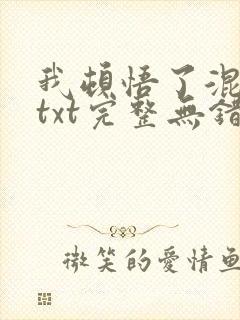 我頓悟了混
txt完整無錯
微笑的愛情魚